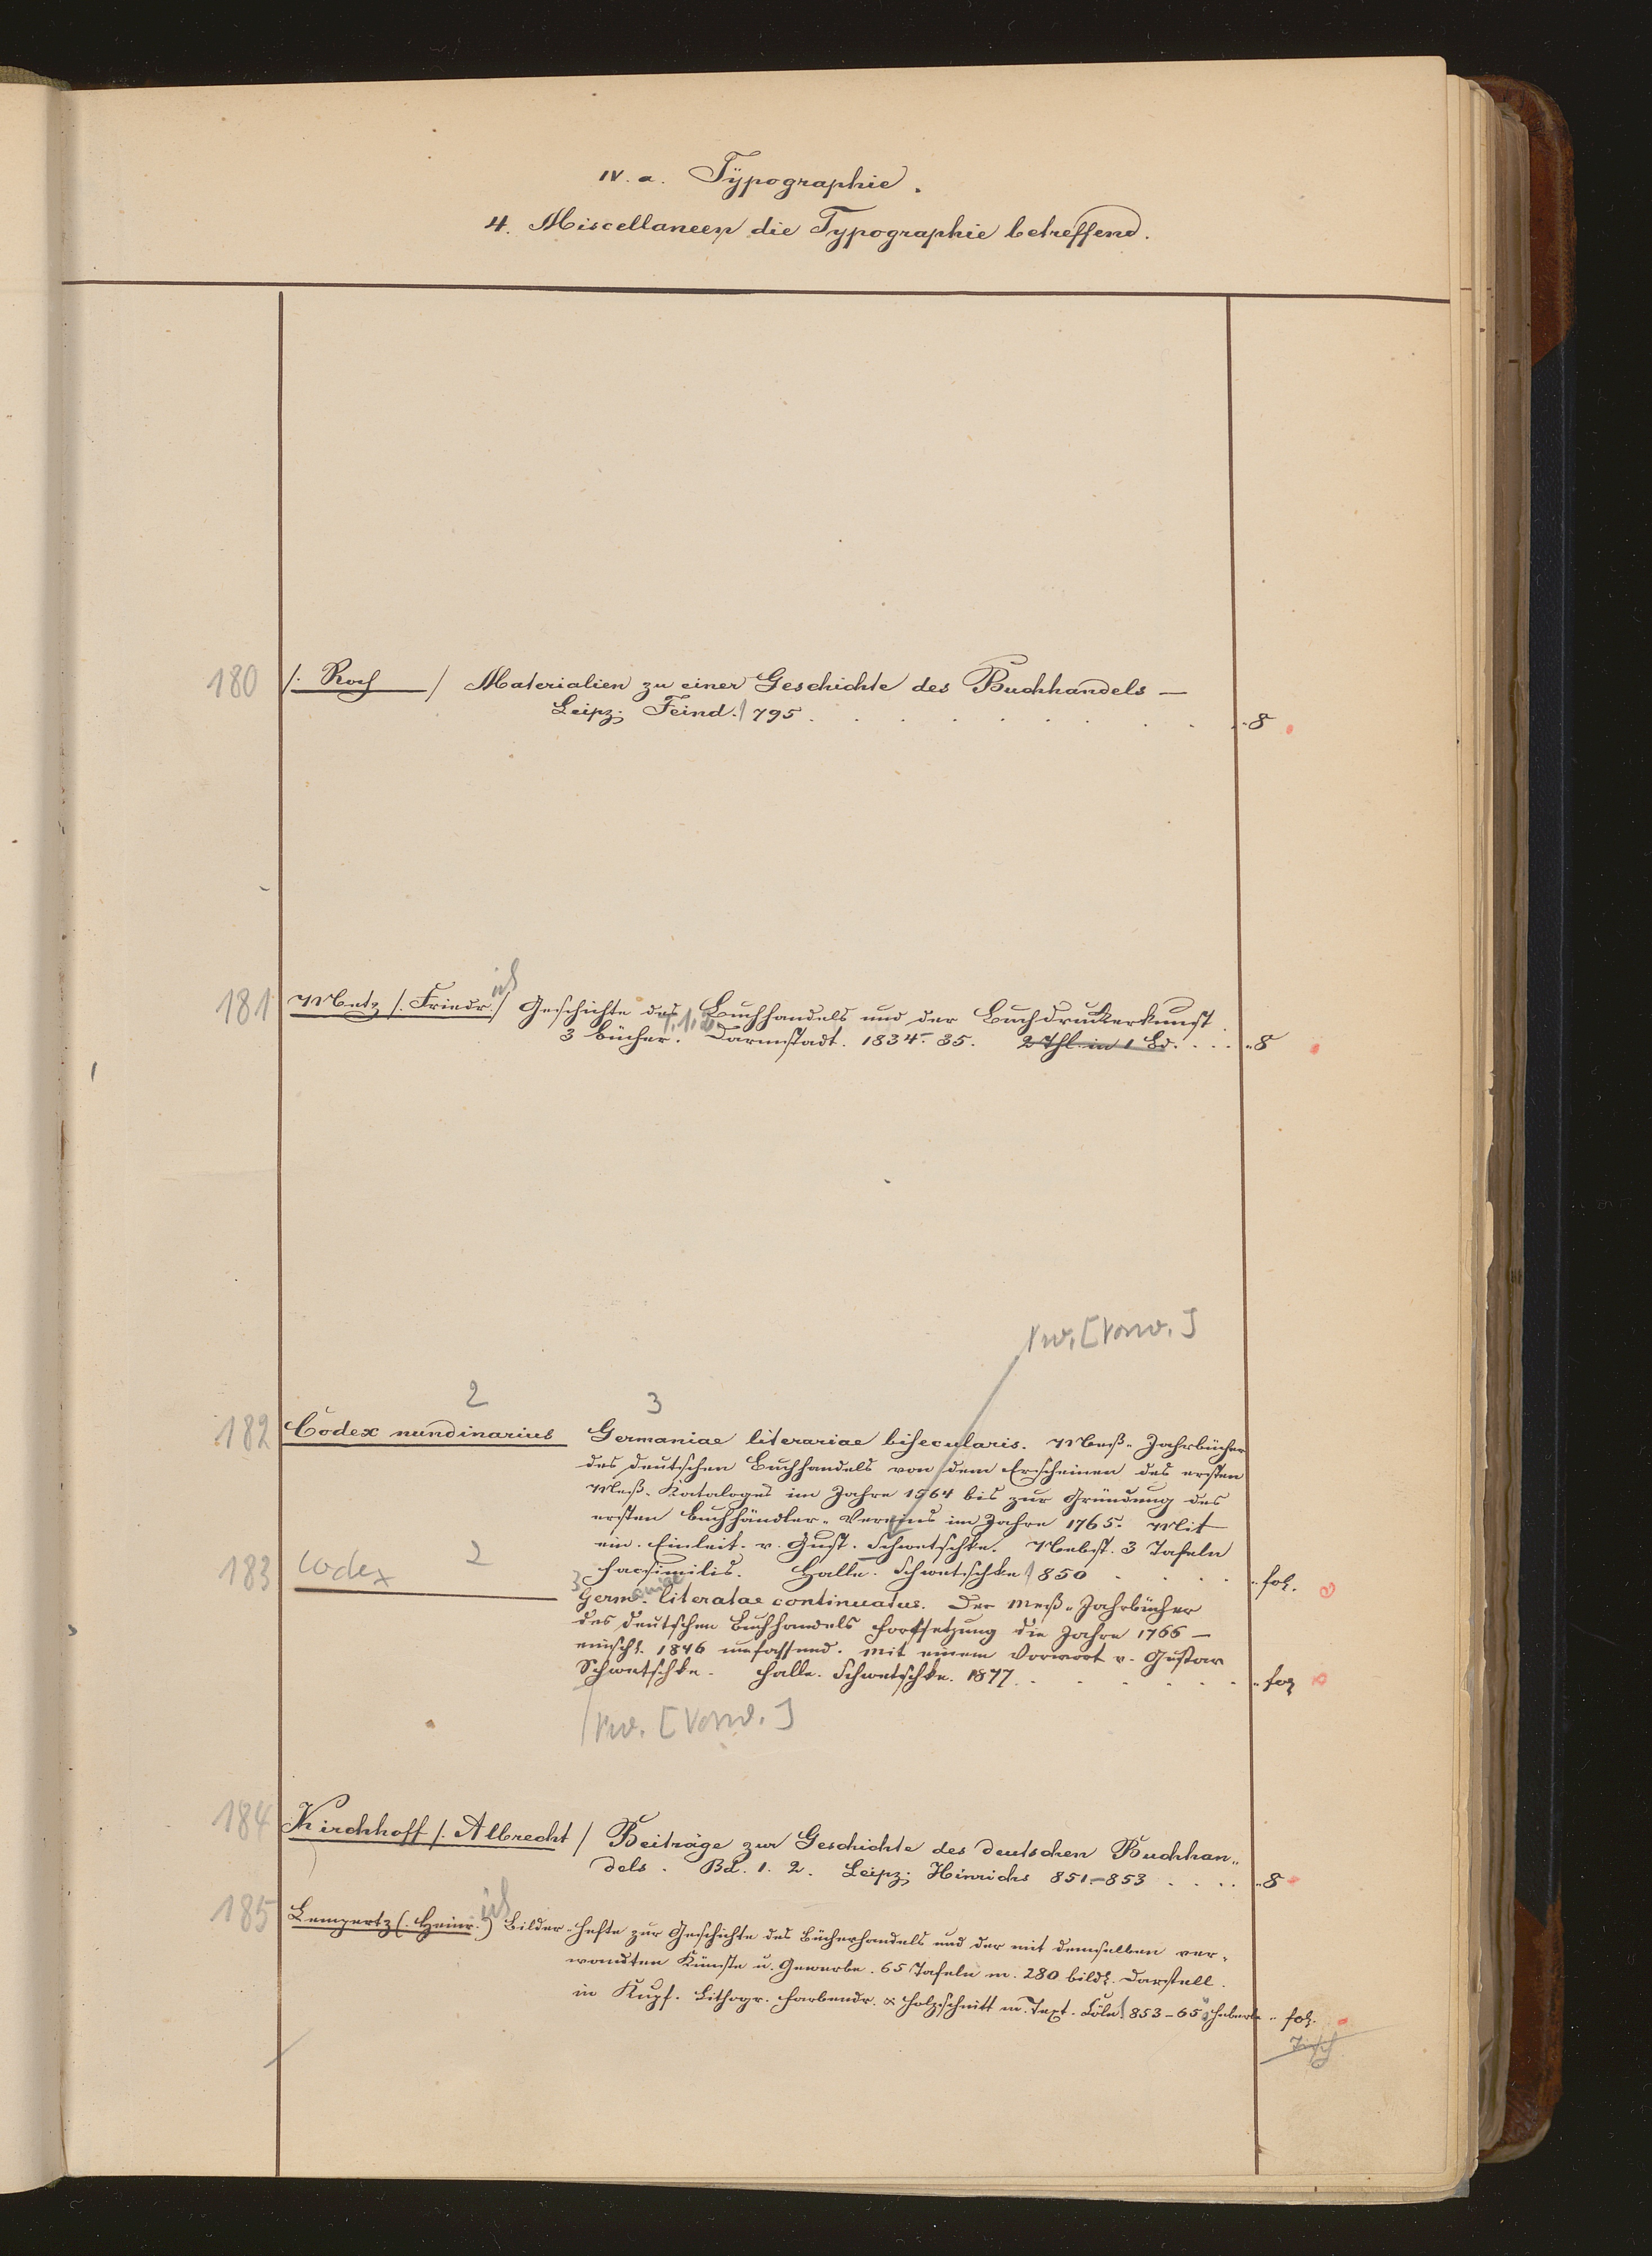 IV. a. Typographie.
4. Miscellaneen die Typographie betreffend.
180 /: Roch / Materialien zu einer Geschichte des Buchhandels —
Leipz; Feind. 795 . . . . . . . . . . 8
181 Metz /. Friedr.ich / Geschichte des Buchhandels und der Buchdruckerkunst.
3 Bücher. T.1.2. Darmstadt. 1834–35. 2 Thl. in 1 Bd. . . . „ 8
Vw. [Vorw.]
2 3
182 Codex nundinarius Germaniae literariae bisecularis. Meß-Jahrbücher
des deutschen Buchhandels von dem Erscheinen des ersten
Meß-Kataloges im Jahre 1564 bis zur Gründung des
ersten Buchhändler-Vereins im Jahre 1765. Mit
ein. Einleit. v. Gust. Schwetschke. Nebst. 3 Tafeln
Facsimilis. Halle. Schwetschke 850 . . . . „ fol.
183 Codex 2 3 Germ.aniae literatae continuatus. Der Meß-Jahrbücher
des deutschen Buchhandels Fortsetzung die Jahre 1766 —
einschl. 1846 umfassend. Mit einem Vorwort v. Gustav
Schwetschke. Halle. Schwetschke. 1877. . . . . . . „ fol
Vw. [Vorw.]
184 Kirchhoff /. Albrecht / Beiträge zur Geschichte des deutschen Buchhan„
dels. Bd. 1. 2. Leipz; Hinrichs 851–853 . . . . „ 8
185 Lempertz (. Heinr.ich) Bilder-Hefte zur Geschichte des Bücherhandels und der mit demselben ver-
wandten Künste u. Gewerbe. 65 Tafeln m. 280 bildl. Darstell.
in Kupf. Lithogr. Farbendr. & Holzschnitt m. Text. Cöln 853–65 Heberle „ fol.